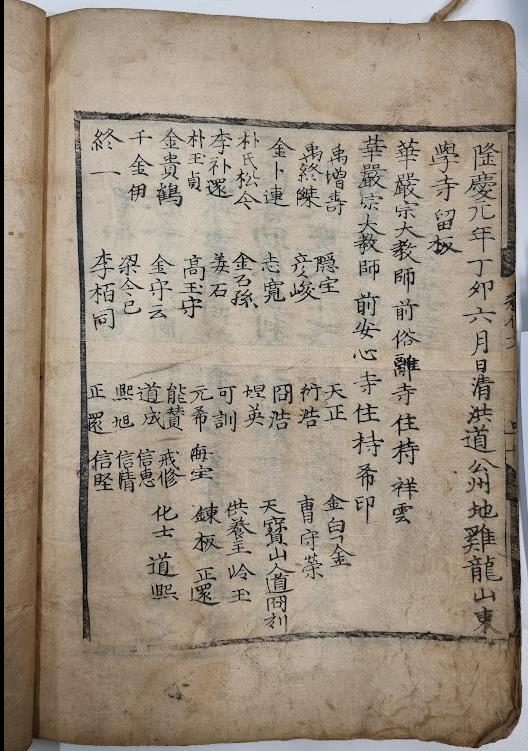 隆慶元年丁卯六月日清洪道公州地雞龍山東
學寺留板
華嚴宗大教師前俗離寺住持祥雲
華嚴宗大教師前安心寺住持希印
禹增壽 隠宝 天正 金白
禹終傑 彦峻 行浩 曹守荣
金卜連 志寛 冏浩 天寶山人道冏刻
朴氏松今 金石孫 坦英 供養主 岭玉
李补還 姜石 可訓 鍊板 正還
朴玉貞 高玉守 元希 海宝
金貴鶴 金守云 能賛 戒修 化士 道熙
千金伊 梁今已 道成 信恵
終一 李栢同 熙旭 信情
正還 信堅